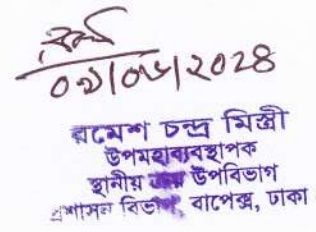 রমেশ চন্দ্র মিস্ত্রী
উপমহাব্যবস্থাপক
স্থানীয় ক্রয় উপবিভাগ
প্রশাসন বিভাগ, বাপেক্স, ঢাকা